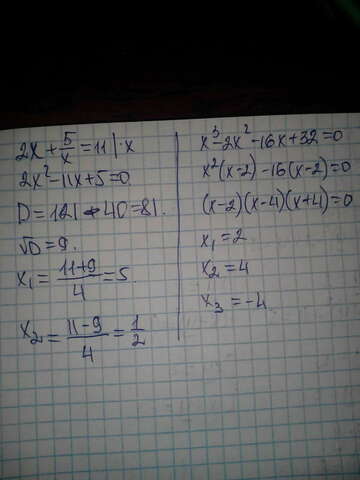 2x + 5/x = 11 | · x
2x² - 11x + 5 = 0.
D = 121 - 40 = 81.
√D = 9.
x₁ = (11+9)/4 = 5.
x₂ = (11-9)/4 = 1/2
x³ - 2x² - 16x + 32 = 0
x²(x-2) - 16(x-2) = 0
(x-2)(x-4)(x+4) = 0
x₁ = 2
x₂ = 4
x₃ = -4